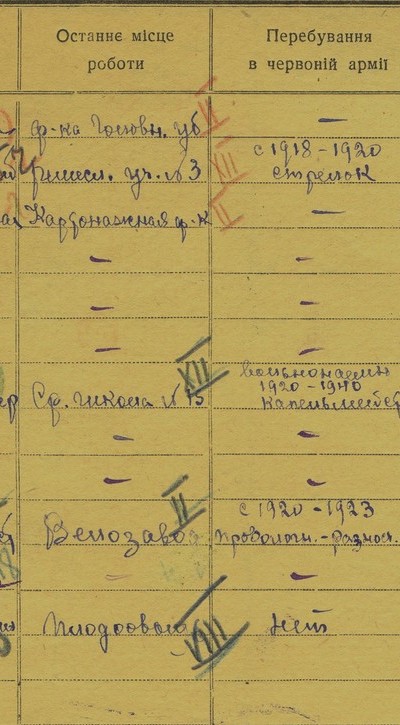 Останнє місце
роботи
Перебування
в червоній армії
ф-ка Головн. уб
II
—
с 1918 - 1920
уч. №3
XII
стрелок
Картонажная ф-к
II
—
—
—
—
—
—
—
XII
вольнонаемн
1920 - 1940
Ср. школа №
Капельмейстер
—
—
—
—
II
с 1920 - 1923
Велозавод
—
—
Плодоовощ
VIII
Нет